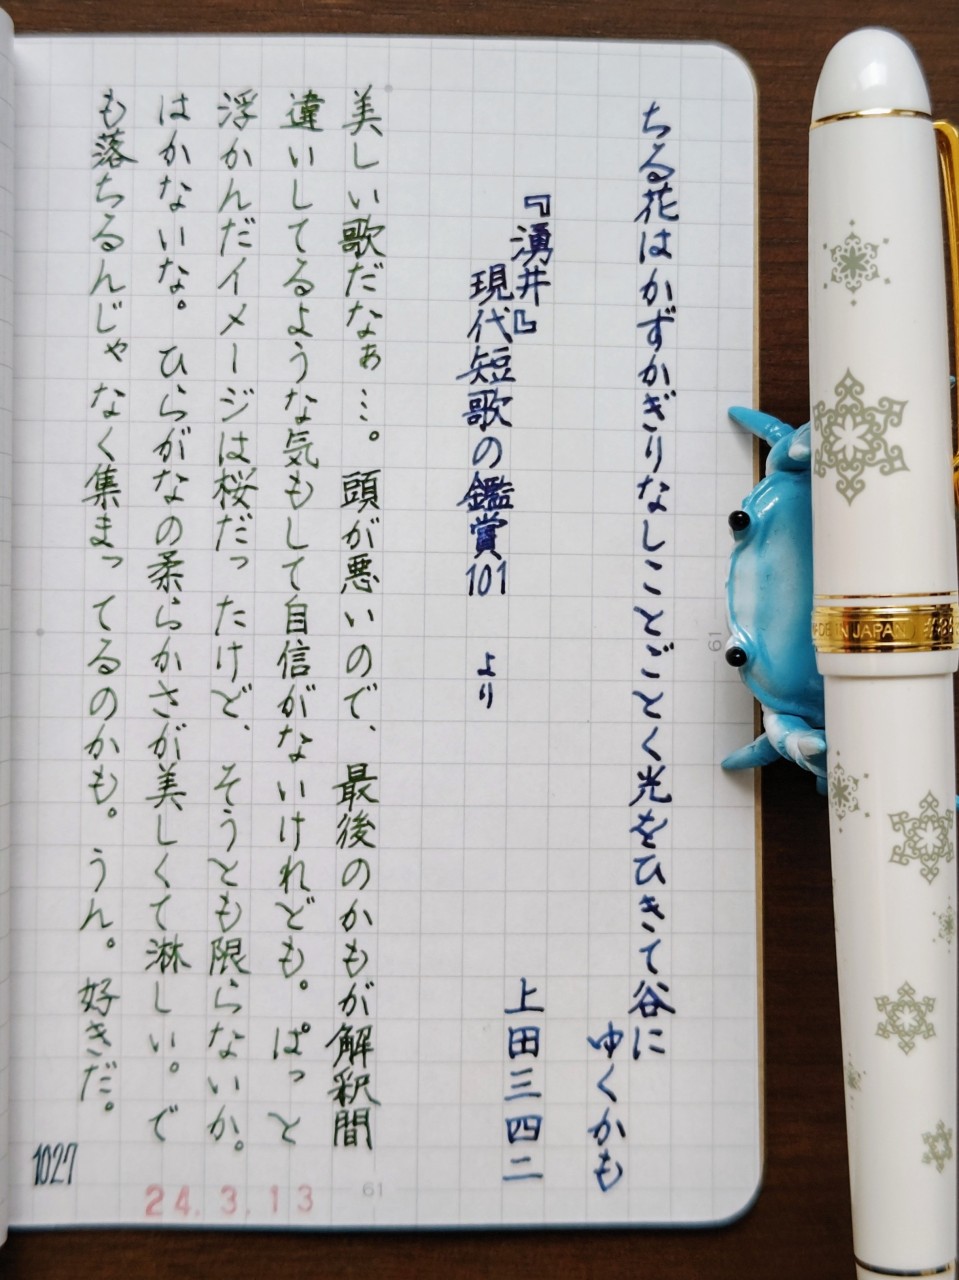 ちる花はかずかぎりなしことごとく光をひきて谷に
ゆくかも
上田三四二
『湧井』
現代短歌の鑑賞101 より
美しい歌だなぁ…。頭が悪いので、最後のかもが解釈間
違いしてるような気もして自信がないけれども。ぱっと
浮かんだイメージは桜だったけど、そうとも限らないか。
はかないな。ひらがなの柔らかさが美しくて淋しい。で
も落ちるんじゃなく集まってるのかも。うん。好きだ。
1027
24.3.13
61
61
DE IN JAPAN